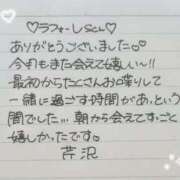 ♡ラフォーレSさん♡
ありがとうございました♡
今回もまた会えて嬉しい〜!!
最初からたくさんお喋りして
一緒に過ごす時間があっという
間でした…!! 朝から会えてすごく
嬉しかったです。
芹沢